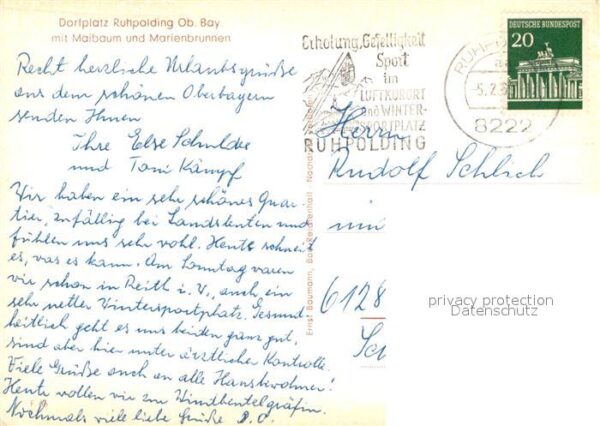 Dorfplatz Ruhpolding Ob. Bay.
mit Maibaum und Marienbrunnen
Recht herzliche Urlaubsgrüße
aus dem schönen Oberbayern
senden Ihnen
Ihre Else Schulde
und Toni Kämpf
Wir haben ein sehr schönes Quar-
tier, zufällig bei Landsleuten und
fühlen uns sehr wohl. Heute schneit
es, was es kann. Am Sonntag waren
wir schon in Reith i. W., auch ein
sehr netter Wintersportplatz. Gesund-
heitlich geht es uns beiden ganz gut,
sind aber hier unter ärztlicher Kontrolle.
Viele Grüße auch an alle Hausbewohner!
Heute wollen wir zur Windbeutelgräfin.
Nochmals viele liebe Grüße D. O.
Ernst Baumann, Bad Reichenhall
Erholung, Geselligkeit
Sport
im
LUFTKURORT
und WINTER-
SPORTPLATZ
RUHPOLDING
DEUTSCHE BUNDESPOST
20
-5.2.
8222
Herrn
Rudolf
6128
privacy protection
Datenschutz